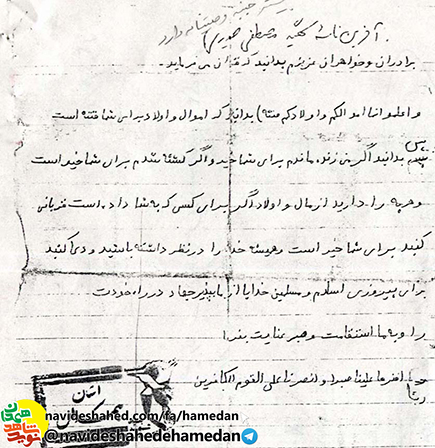 بیشتر جنبه وصیتنامه دارد
آخرین نامه شهید مصطفی
برادران و خواهران عزیزم بدانید که قرآن می فرماید.
واعلموا انما اموالکم و اولادکم فتنه) بدانید که اموال و اولاد برای شما فتنه است
پس بدانید اگر من زنده ماندم برای شما خیر و اگر کشته شدم برای شما خیر است
و هر چه را دارید از مال و اولاد اگر برای کسی که به شما داده است قربانی
کنید برای شما خیر است و همیشه خدا را در نظر داشته باشید و دعا کنید
برای پیروزی اسلام و مسلمین خدایا از ما بپذیر جهاد در راه خودت
را و به ما استقامت و صبر عنایت بفرما
ربنا افرغ علینا صبرا و انصرنا علی القوم الکافرین
استان
navideshahed.com/fa/hamedan
@navideshahedehamedan
نوید شاهد همدان